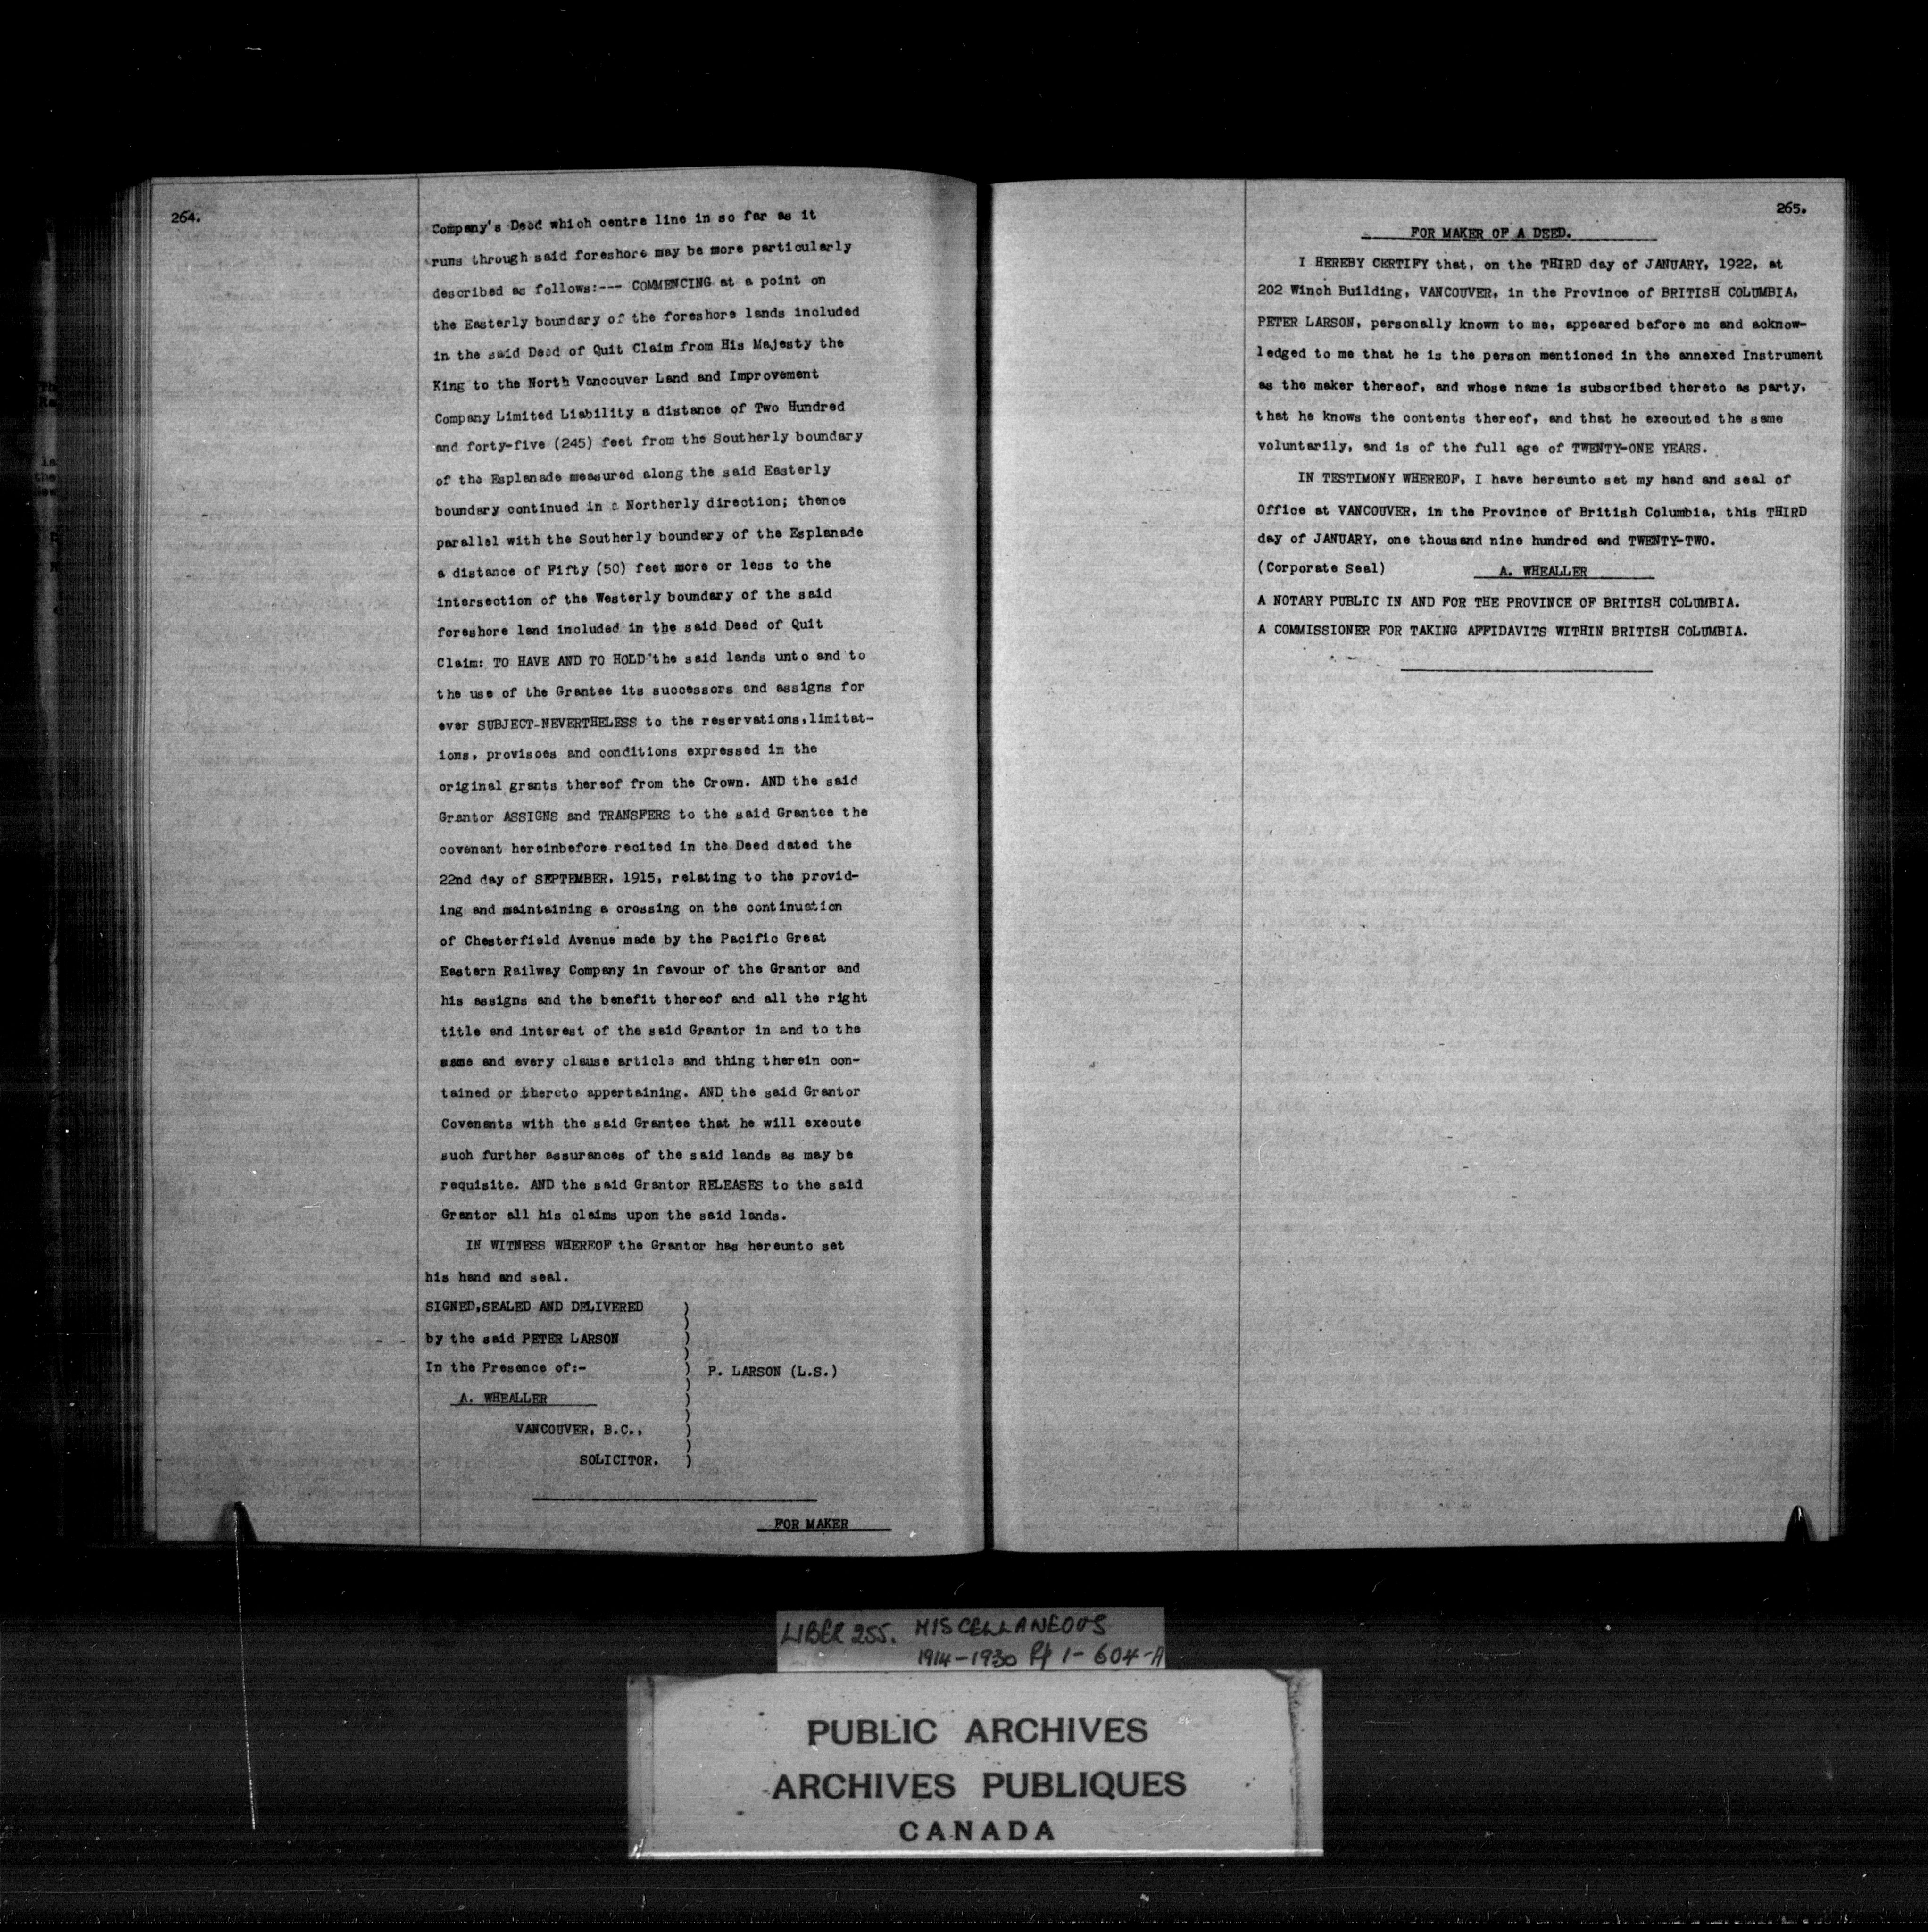 264.
Company's Deed which centre line in so far as it
runs through said foreshore may be more particularly
described as follows:--- COMMENCING at a point on
the Easterly boundary of the foreshore lands included
in the said Deed of Quit Claim from His Majesty the
King to the North Vancouver Land and Improvement
Company Limited Liability a distance of Two Hundred
and forty-five (245) feet from the Southerly boundary
of the Esplanade measured along the said Easterly
boundary continued in a Northerly direction; thence
parallel with the Southerly boundary of the Esplanade
a distance of Fifty (50) feet more or less to the
intersection of the Westerly boundary of the said
foreshore land included in the said Deed of Quit
Claim: TO HAVE AND TO HOLD the said lands unto and to
the use of the Grantee its successors and assigns for
ever SUBJECT-NEVERTHELESS to the reservations,limitat-
ions, provisoes and conditions expressed in the
original grants thereof from the Crown. AND the said
Grantor ASSIGNS and TRANSFERS to the said Grantee the
covenant hereinbefore recited in the Deed dated the
22nd day of SEPTEMBER, 1915, relating to the provid-
ing and maintaining a crossing on the continuation
of Chesterfield Avenue made by the Pacific Great
Eastern Railway Company in favour of the Grantor and
his assigns and the benefit thereof and all the right
title and interest of the said Grantor in and to the
same and every clause article and thing therein con-
tained or thereto appertaining. AND the said Grantor
Covenants with the said Grantee that he will execute
such further assurances of the said lands as may be
requisite. AND the said Grantor RELEASES to the said
Grantor all his claims upon the said lands.
IN WITNESS WHEREOF the Grantor has hereunto set
his hand and seal.
SIGNED,SEALED AND DELIVERED )
)
by the said PETER LARSON )
)
In the Presence of:- ) P. LARSON (L.S.)
)
A. WHEALLER )
)
VANCOUVER, B.C., )
)
SOLICITOR. )
FOR MAKER
265.
FOR MAKER OF A DEED.
I HEREBY CERTIFY that, on the THIRD day of JANUARY, 1922, at
202 Winch Building, VANCOUVER, in the Province of BRITISH COLUMBIA,
PETER LARSON, personally known to me, appeared before me and acknow-
ledged to me that he is the person mentioned in the annexed Instrument
as the maker thereof, and whose name is subscribed thereto as party,
that he knows the contents thereof, and that he executed the same
voluntarily, and is of the full age of TWENTY-ONE YEARS.
IN TESTIMONY WHEREOF, I have hereunto set my hand and seal of
Office at VANCOUVER, in the Province of British Columbia, this THIRD
day of JANUARY, one thousand nine hundred and TWENTY-TWO.
(Corporate Seal) A. WHEALLER
A NOTARY PUBLIC IN AND FOR THE PROVINCE OF BRITISH COLUMBIA.
A COMMISSIONER FOR TAKING AFFIDAVITS WITHIN BRITISH COLUMBIA.
LIBER 255. MISCELLANEOUS
1914-1930 Pp 1-604-A
PUBLIC ARCHIVES
ARCHIVES PUBLIQUES
CANADA